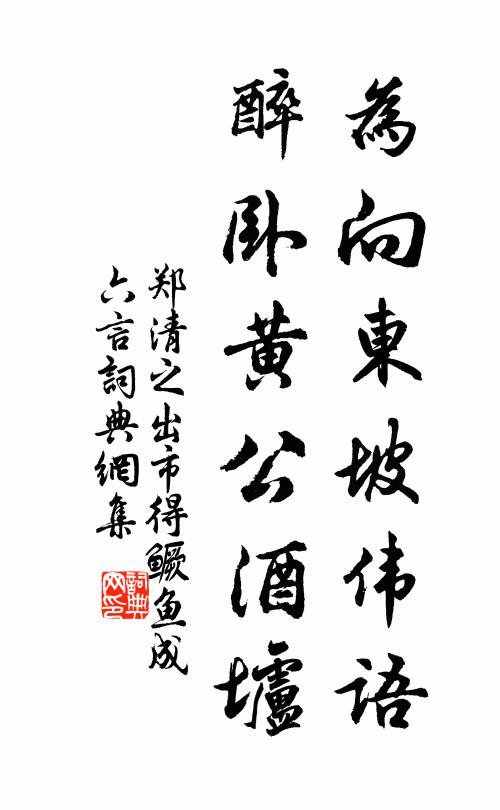 為向東坡伟語
醉卧黄公酒壚
郑清之出市得鳜鱼成
六言詞典網集
詞典网印